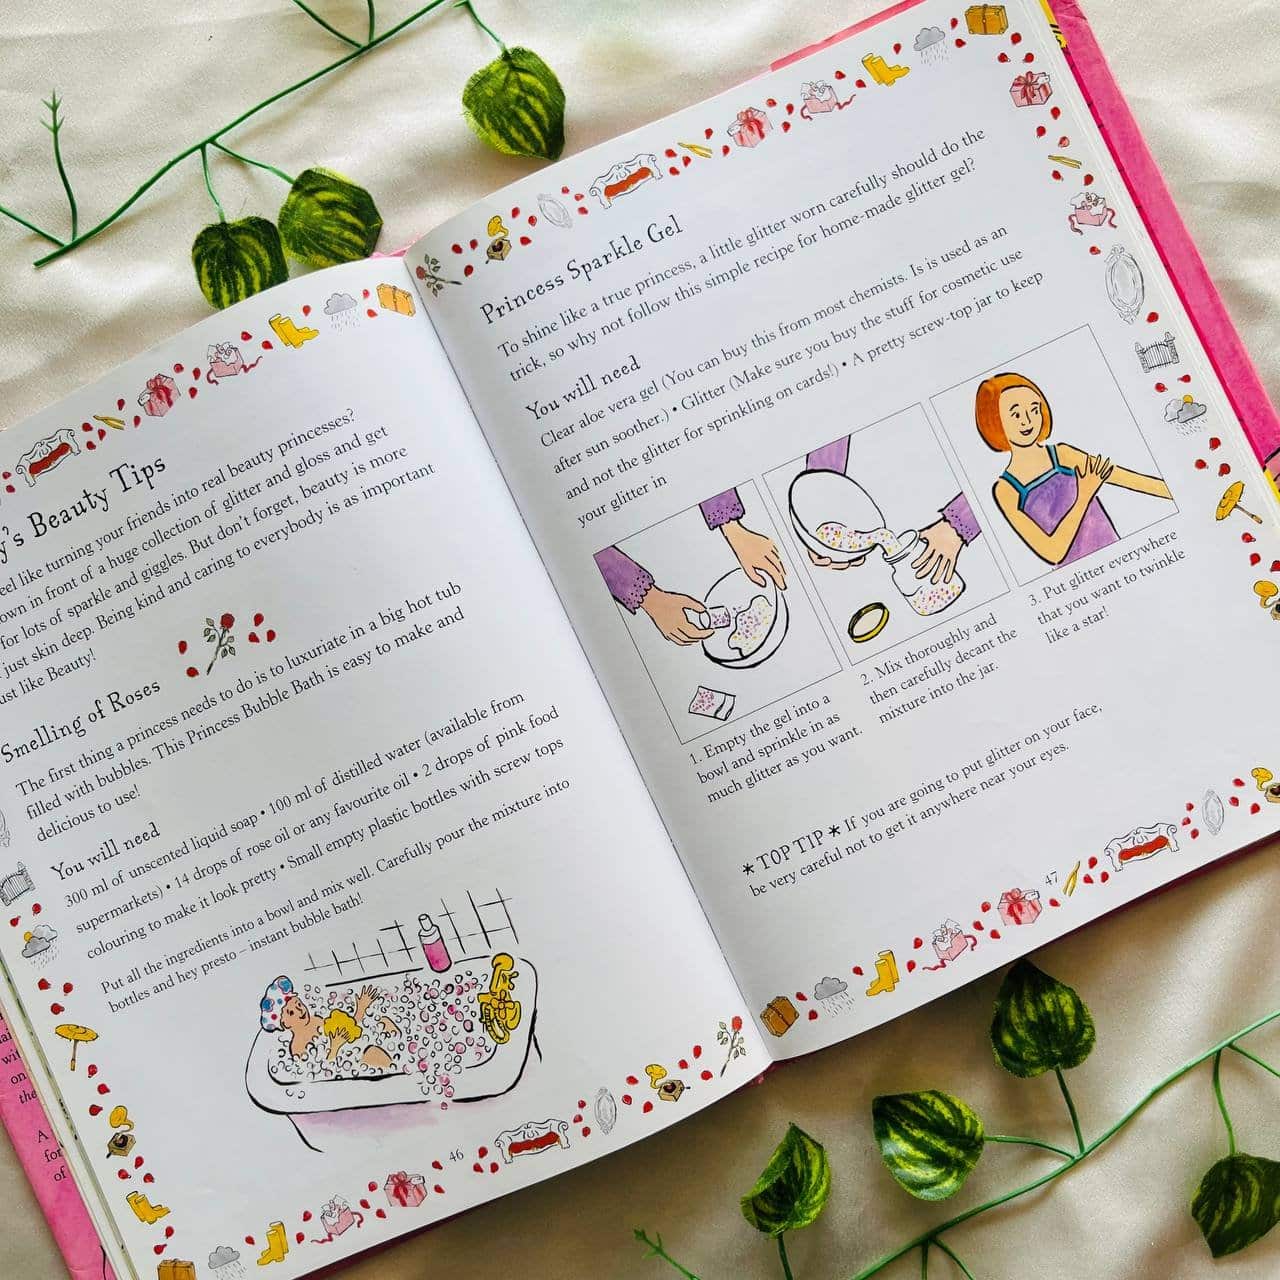 y's Beauty Tips
eel like turning your friends into real beauty princesses?
own in front of a huge collection of glitter and gloss and get
for lots of sparkle and giggles. But don't forget, beauty is more
just skin deep. Being kind and caring to everybody is as important
ust like Beauty!
Smelling of Roses
The first thing a princess needs to do is to luxuriate in a big hot tub
filled with bubbles. This Princess Bubble Bath is easy to make and
delicious to use!
You will need
300 ml of unscented liquid soap • 100 ml of distilled water (available from
supermarkets) • 14 drops of rose oil or any favourite oil • 2 drops of pink food
colouring to make it look pretty • Small empty plastic bottles with screw tops
Put all the ingredients into a bowl and mix well. Carefully pour the mixture into
bottles and hey presto – instant bubble bath!
46
Princess Sparkle Gel
To shine like a true princess, a little glitter worn carefully should do the
trick, so why not follow this simple recipe for home-made glitter gel?
You will need
Clear aloe vera gel (You can buy this from most chemists. Is is used as an
after sun soother.) • Glitter (Make sure you buy the stuff for cosmetic use
and not the glitter for sprinkling on cards!) • A pretty screw-top jar to keep
your glitter in
1. Empty the gel into a
bowl and sprinkle in as
much glitter as you want.
2. Mix thoroughly and
then carefully decant the
mixture into the jar.
3. Put glitter everywhere
that you want to twinkle
like a star!
* TOP TIP * If you are going to put glitter on your face,
be very careful not to get it anywhere near your eyes.
47
wi
on
the
A
for
of